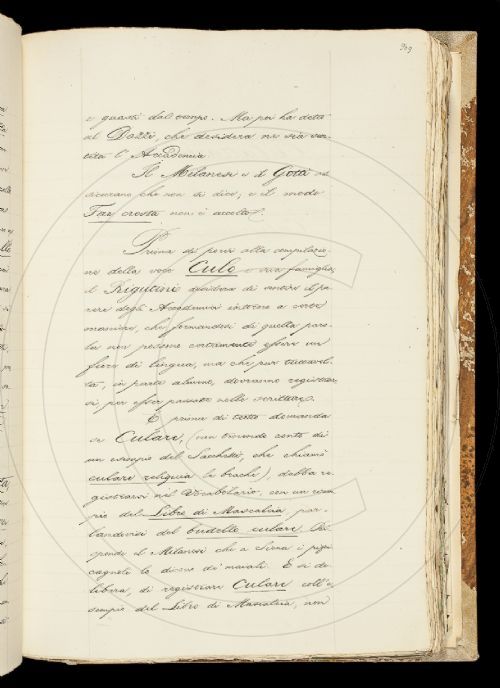 369
e guasti dal tempo. Ma poi ha detto
al Dazzi, che desidera ne sia av-
vertita l'Accademia
Il Milanesi e il Gotti
dicevano che non si dice, e il modo
Far cresta non è accolto.
Prima di porsi alla compilazio-
ne della voce Culo e sua famiglia,
il Rigutini desidera di sentire il pa-
rere degli Accademici intorno a certe
maniere, che formandosi di quella paro-
la non possono certamente essere un
fiore di lingua, ma che pur tuttavol-
ta, in parte almeno, dovranno registrar-
si, per esser passate nelle scritture.
E prima di tutto domanda
se Culare, (non tenendo conto di
un esempio del Sacchetti, che chiamò
culari reliquie le brache), debba re-
gistrarsi nel Vocabolario, con un esem-
pio del Libro di Mascalcia par-
landovisi del budello culare. Ris-
ponde il Milanesi che a Siena i pizzi-
cagnoli lo dicono di maiali. E si de-
libera, di registrare Culare coll'e-
sempio del Libro di Mascalcia, non